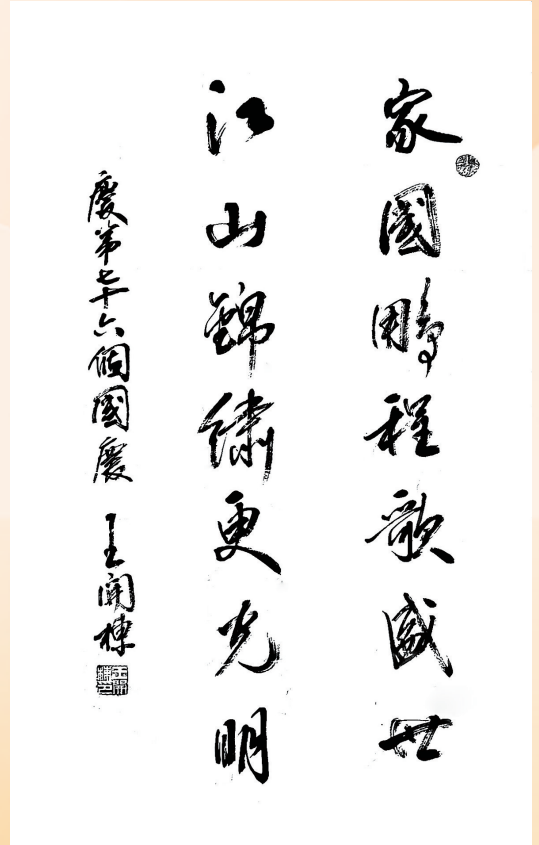 家國鵬程歌盛世
江山錦繡更光明
慶第七十六個國慶 王開棟